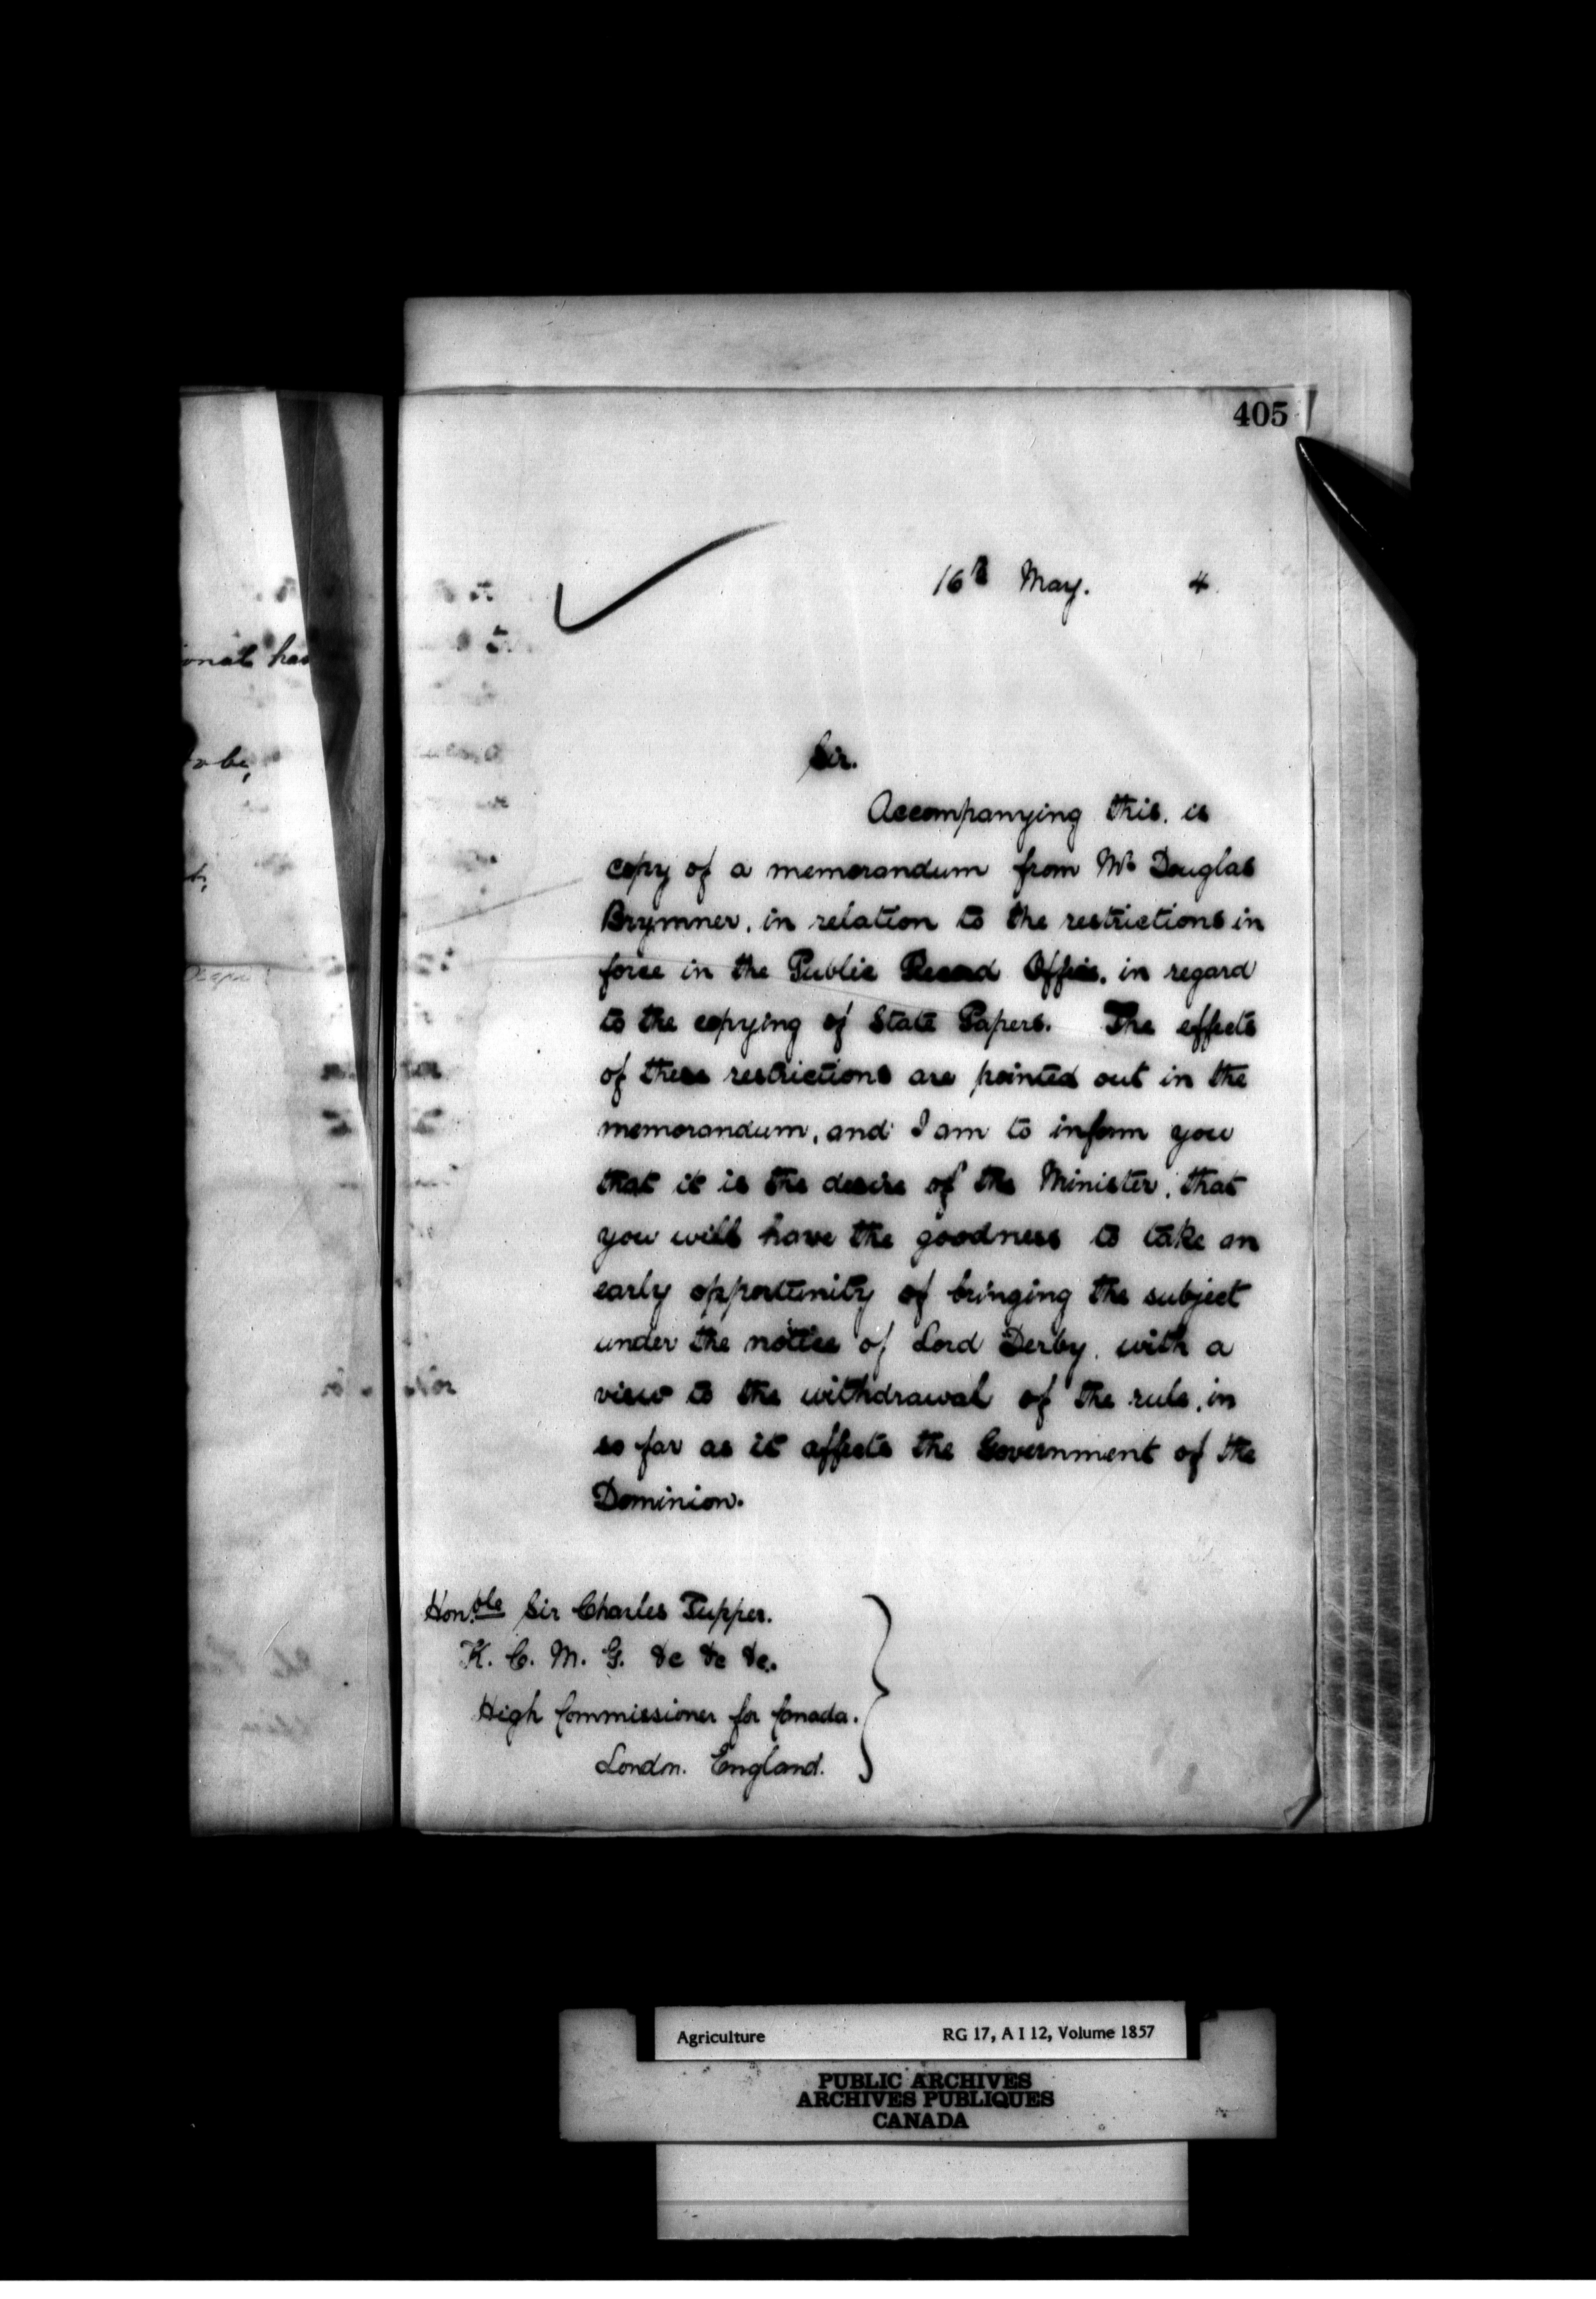 405
16th May. 4
Sir.
Accompanying this, is
copy of a memorandum from Mr Douglas
Brymner, in relation to the restrictions in
force in the Public Record Office, in regard
to the copying of State Papers. The effects
of these restrictions are pointed out in the
memorandum, and I am to inform you
that it is the desire of the Minister, that
you will have the goodness to take an
early opportunity of bringing the subject
under the notice of Lord Derby, with a
view to the withdrawal of the rule, in
so far as it affects the Government of the
Dominion.
Hon.ble Sir Charles Tupper.
K. C. M. G. &c &c &c.
High Commissioner for Canada.
London. England.
Agriculture RG 17, A I 12, Volume 1857
PUBLIC ARCHIVES
ARCHIVES PUBLIQUES
CANADA